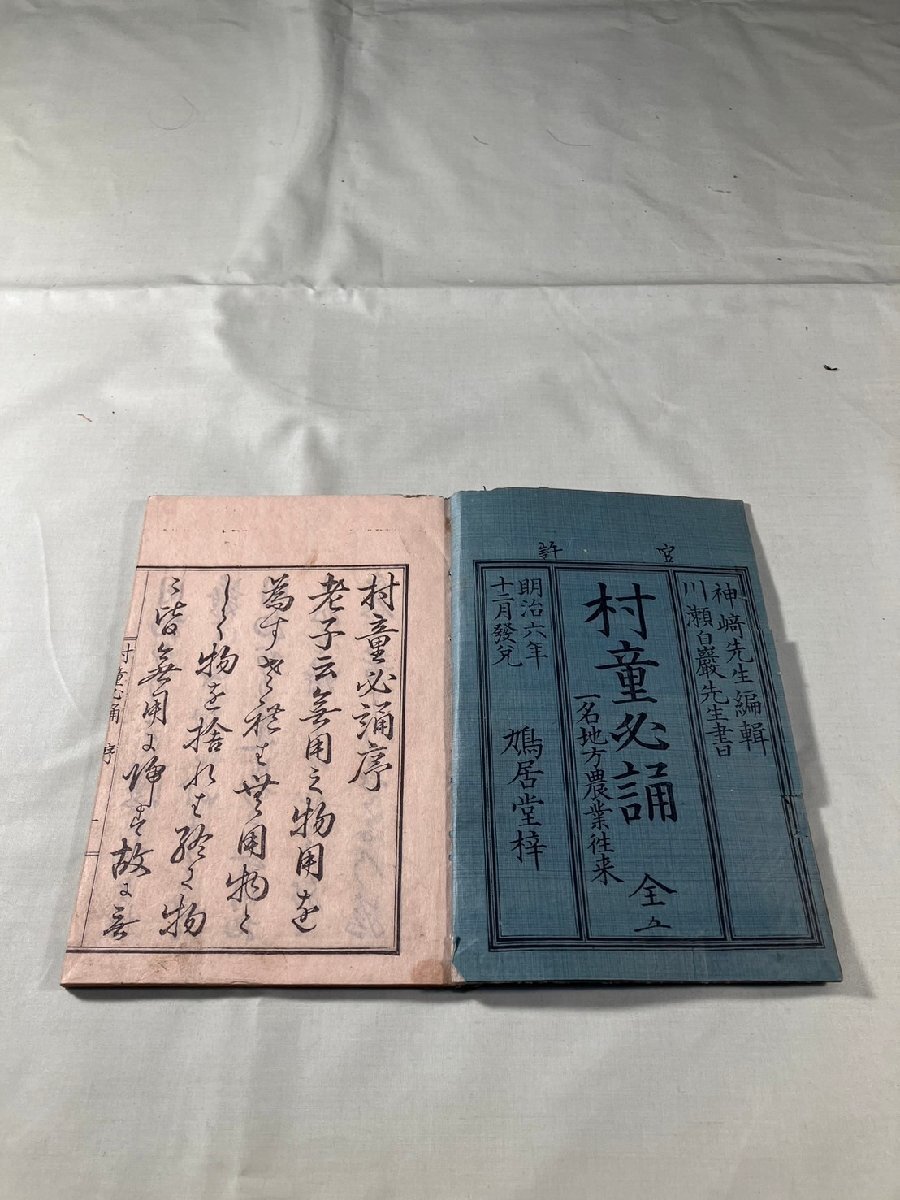 官許
神﨑先生編輯
川瀬白巖先生書
村童必誦
一名地方農業徃来
全
明治六年
十二月發兌
鳩居堂梓
村童必誦序
老子云無用之物用を
為す
無用物と
物を捨れは終に物
皆無用に帰す故に無
村童必誦 序